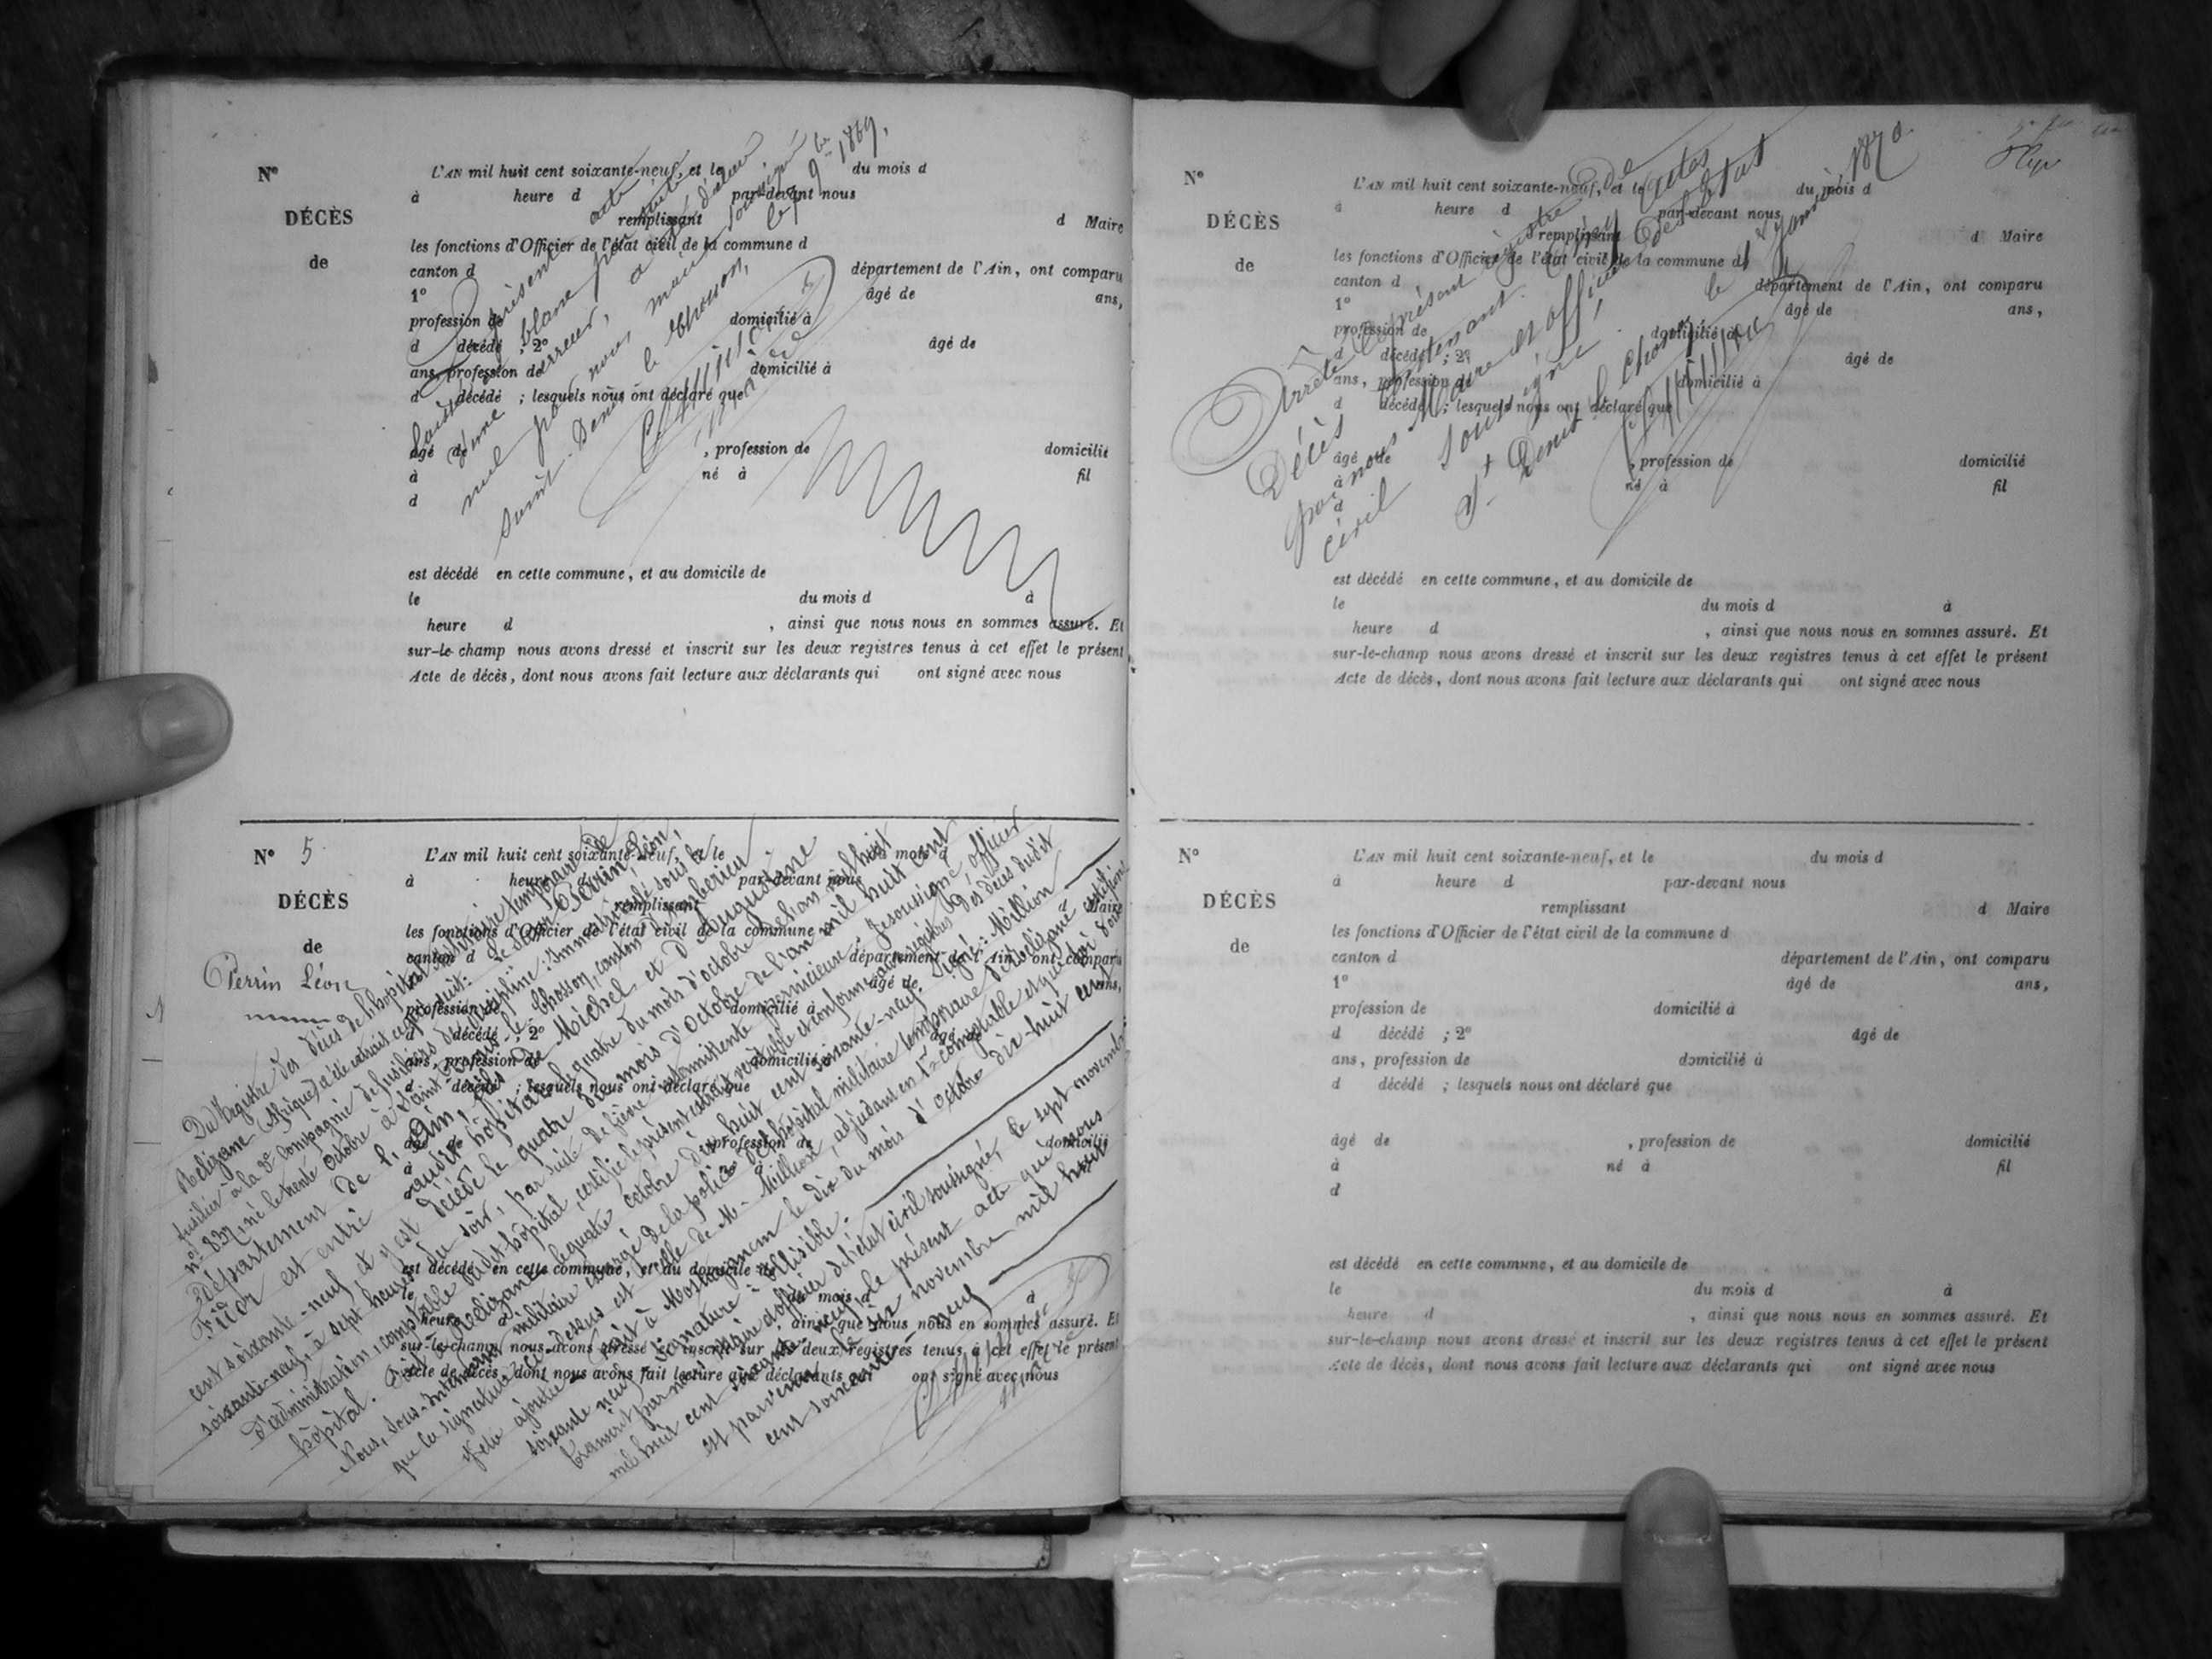 N°
DÉCÈS
de
L'AN mil huit cent soixante-neuf, et le du mois d
à heure d par-devant nous
remplissant d Maire
les fonctions d'Officier de l'état civil de la commune d
canton d département de l'Ain, ont comparu
1° âgé de ans,
profession de domicilié à
d décédé ; 2° âgé de
ans, profession de domicilié à
d décédé ; lesquels nous ont déclaré que
âgé de , profession de domicilié
à né à fil
d
est décédé en cette commune, et au domicile de
le du mois d à
heure d , ainsi que nous nous en sommes assuré. Et
sur-le-champ nous avons dressé et inscrit sur les deux registres tenus à cet effet le présent
Acte de décès, dont nous avons fait lecture aux déclarants qui ont signé avec nous
présent acte
blanc par suite
d'une erreur, a
nul par nous, maire soussigné
Saint-Denis le Chosson, le 7 9bre 1869.
N° 5
DÉCÈS
de
Perrin Léon
L'AN mil huit cent soixante-neuf, et le du mois d
à heure d par-devant nous
remplissant d Maire
les fonctions d'Officier de l'état civil de la commune d
canton d département de l'Ain, ont comparu
1° âgé de ans,
profession de domicilié à
d décédé ; 2° âgé de
ans, profession de domicilié à
d décédé ; lesquels nous ont déclaré que
âgé de , profession de domicilié
à né à fil
d
est décédé en cette commune, et au domicile de
le du mois d à
heure d , ainsi que nous nous en sommes assuré. Et
sur-le-champ nous avons dressé et inscrit sur les deux registres tenus à cet effet le présent
Acte de décès, dont nous avons fait lecture aux déclarants qui ont signé avec nous
Du registre des décès de l'hôpital militaire temporaire de
Relizane (Afrique) a été extrait ce qui suit: Le sieur Perrin, Léon,
fusilier à la 3e Compagnie de fusiliers de discipline, immatriculé sous le
n° 837, né le trente octobre à Saint Denis le Chosson, canton d'Ambérieu
Département de l'Ain, fils de Michel et D'Augustine
est entré audit hôpital le quatre du mois d'octobre de l'an mil huit
cent soixante-neuf et y est décédé le quatre du mois d'octobre de l'an mil huit cent
soixante-neuf, à sept heures du soir, par suite de fièvre intermittente pernicieuse. Je soussigné, officier
d'administration, comptable dudit hôpital, certifie le présent extrait véritable et conforme aux registres des décès dudit
hôpital. Fait à Relizane le quatre octobre dix huit cent soixante-neuf. Signé: Million
Nous, sous-Intendant militaire chargé de la police de l'hôpital militaire temporaire de Relizane certifions
que la signature ci-dessus est celle de M. Million, adjudant en 1er comptable et que foi doit
y être ajoutée. Fait à Mostaganem le dix du mois d'octobre dix-huit cent
soixante neuf. Signature illisible.
Transcrit par nous maire et officier de l'état civil soussigné, le sept novembre
mil huit cent soixante neuf, le présent acte qui nous
est parvenu le six novembre mil huit
cent soixante-neuf
1870
N°
DÉCÈS
de
L'AN mil huit cent soixante-neuf, et le du mois d
à heure d par-devant nous
remplissant d Maire
les fonctions d'Officier de l'état civil de la commune d
canton d département de l'Ain, ont comparu
1° âgé de ans,
profession de domicilié à
d décédé ; 2° âgé de
ans, profession de domicilié à
d décédé ; lesquels nous ont déclaré que
âgé de , profession de domicilié
à né à fil
d
est décédé en cette commune, et au domicile de
le du mois d à
heure d , ainsi que nous nous en sommes assuré. Et
sur-le-champ nous avons dressé et inscrit sur les deux registres tenus à cet effet le présent
Acte de décès, dont nous avons fait lecture aux déclarants qui ont signé avec nous
Arrêté le présent registre de
Décès contenant cinq actes
par nous Maire et officier de l'état
civil soussigné.
St Denis le Chosson le 1er Janvier
N°
DÉCÈS
de
L'AN mil huit cent soixante-neuf, et le du mois d
à heure d par-devant nous
remplissant d Maire
les fonctions d'Officier de l'état civil de la commune d
canton d département de l'Ain, ont comparu
1° âgé de ans,
profession de domicilié à
d décédé ; 2° âgé de
ans, profession de domicilié à
d décédé ; lesquels nous ont déclaré que
âgé de , profession de domicilié
à né à fil
d
est décédé en cette commune, et au domicile de
le du mois d à
heure d , ainsi que nous nous en sommes assuré. Et
sur-le-champ nous avons dressé et inscrit sur les deux registres tenus à cet effet le présent
Acte de décès, dont nous avons fait lecture aux déclarants qui ont signé avec nous